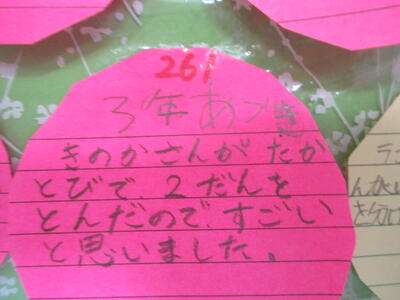 261
3年あつき
きのかさんがたか
とびで、2だんを
とんだので、すごい
と思いました。